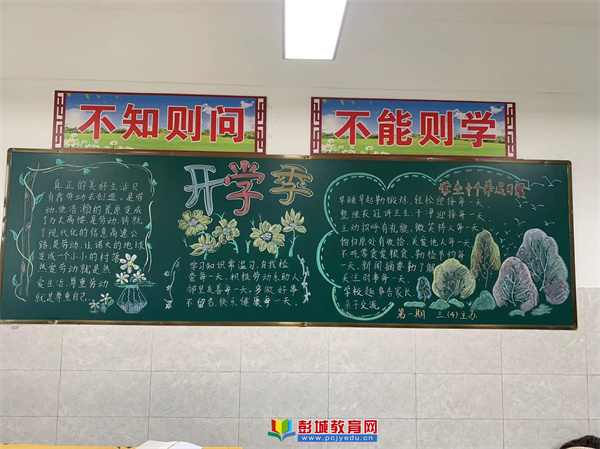 不知则问
不能则学
真正的美好生活只
有靠劳动去创造。是劳
动,使浩瀚的荒原变成
了万丈高楼。是劳动,铸就
了现代化的信息高速公
路。是劳动,让偌大的地球
变成一个小小的村落。
热爱劳动就是热
爱生活。尊重劳动
就是尊重自己。
开学季
学习知识常温习,自我检
查每一天。积极劳动长助人,
邻里友善每一天。多做好事
不留名,快乐健康每一天。
学生十个养成习惯
早睡早起勤锻炼,轻松迎接每一天
整理衣冠讲卫生,干净迎接每一天
主动招呼有礼貌,微笑待人每一天
物归原处有收拾,关爱他人每一天
不吃零食爱粮食,勤俭节约每
一天。新闻摘要勤了解
关心时事每一天。
学校趣事告家长
亲子交流
第一期 三(4)主办
彭城教育网
www.pcjyedu.cn